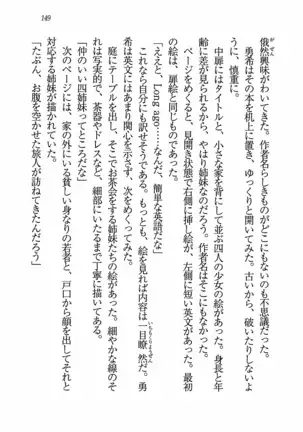 149
俄然興味がわいてきた。作者名らしきものがどこにもないのも不思議だった。
勇希はその本を机上に置き、ゆっくりと開いてみた。古いから、破いたりしないよ
うに、慎重に。
中扉にはタイトルと、小さな家を背景に並ぶ四人の少女の絵があった。身長と年
齢に差が見られるから、やはり姉妹なのだろう。作者名はそこにもなかった。
ページをめくると、見開き状態で右側に挿し絵が、左側に短い英文があった。最初
の絵は、扉絵と同じものであった。
「ええと、Long ago……なんだ、簡単な英語だな」
これなら自分にも訳せそうである。もっとも、絵を見れば内容は一目瞭然だ。勇
いちもくりょうぜん
希は英文にはあまり関心を示さず、次をめくってみる。
庭にテーブルを出し、そこでお茶会をする姉妹たちの絵があった。細やかな線でそ
れは写実的で、茶器やドレスなど、細部にいたるまで丁寧に描いてある。
「仲のいい四姉妹ってところだな」
次のページには、家の外にいる貧しい身なりの若者と、戸口から顔を出してそれと
対応する姉妹が描いてあった。
「たぶん、お腹を空かせた旅人が訪ねてきたんだろう」